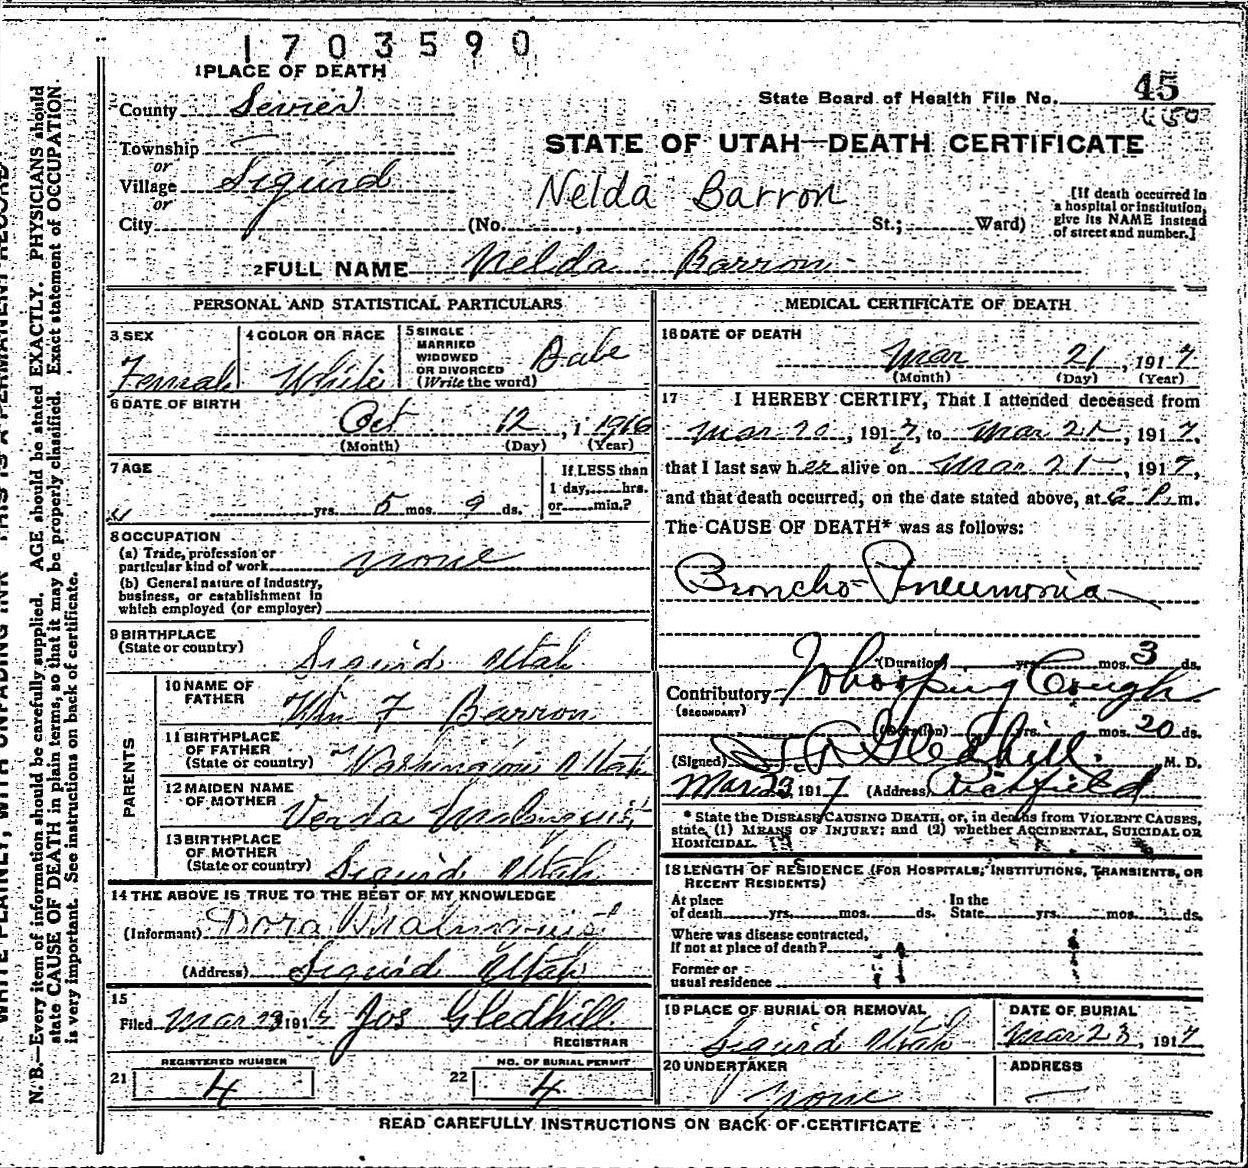 1703590
1 PLACE OF DEATH
County Sevier
State Board of Health File No. 45
650
Township
or
STATE OF UTAH—DEATH CERTIFICATE
Village Sigurd
or
Nelda Barron
City (No. , St.; Ward)
[If death occurred in
a hospital or institution,
give its NAME instead
of street and number.]
2 FULL NAME Nelda Barron
PERSONAL AND STATISTICAL PARTICULARS
3 SEX
Female
4 COLOR OR RACE
White
5 SINGLE
MARRIED
WIDOWED
OR DIVORCED
(Write the word)
Babe
6 DATE OF BIRTH
Oct 12, 1 1916
(Month) (Day) (Year)
7 AGE
yrs. 5 mos. 9 ds.
If LESS than
1 day, hrs.
or min.?
8 OCCUPATION
(a) Trade, profession or
particular kind of work none
(b) General nature of industry,
business, or establishment in
which employed (or employer)
9 BIRTHPLACE
(State or country) Sigurd Utah
PARENTS
10 NAME OF
FATHER Wm F Barron
11 BIRTHPLACE
OF FATHER
(State or country) Washington Utah
12 MAIDEN NAME
OF MOTHER Verda Malmquist
13 BIRTHPLACE
OF MOTHER
(State or country) Sigurd Utah
14 THE ABOVE IS TRUE TO THE BEST OF MY KNOWLEDGE
(Informant) Dora Malmquist
(Address) Sigurd Utah
15
Filed Mar 23 191 Jos Gledhill
REGISTRAR
REGISTERED NUMBER
21 4
NO. OF BURIAL PERMIT
22 4
MEDICAL CERTIFICATE OF DEATH
16 DATE OF DEATH
Mar 21, 1917
(Month) (Day) (Year)
17 I HEREBY CERTIFY, That I attended deceased from
Mar 20, 1917, to Mar 21, 1917,
that I last saw her alive on Mar 21, 1917,
and that death occurred, on the date stated above, at 6 P.m.
The CAUSE OF DEATH* was as follows:
Broncho-Pneumonia
(Duration) yrs. mos. 3 ds.
Contributory Whooping Cough
(SECONDARY)
(Duration) yrs. mos. 20 ds.
(Signed) Gledhill M. D.
Mar 23, 1917 (Address) Richfield
* State the DISEASE CAUSING DEATH, or, in deaths from VIOLENT CAUSES,
state, (1) MEANS OF INJURY; and (2) whether ACCIDENTAL, SUICIDAL OR
HOMICIDAL.
18 LENGTH OF RESIDENCE (FOR HOSPITALS, INSTITUTIONS, TRANSIENTS, OR
RECENT RESIDENTS)
At place In the
of death yrs. mos. ds. State yrs. mos. ds.
Where was disease contracted,
If not at place of death?
Former or
usual residence
19 PLACE OF BURIAL OR REMOVAL
Sigurd Utah
DATE OF BURIAL
Mar 23, 1917
20 UNDERTAKER
none
ADDRESS
READ CAREFULLY INSTRUCTIONS ON BACK OF CERTIFICATE
WRITE PLAINLY, WITH UNFADING INK—THIS IS A PERMANENT RECORD
N. B.—Every item of information should be carefully supplied. AGE should be stated EXACTLY. PHYSICIANS should
state CAUSE OF DEATH in plain terms, so that it may be properly classified. Exact statement of OCCUPATION
is very important. See instructions on back of certificate.